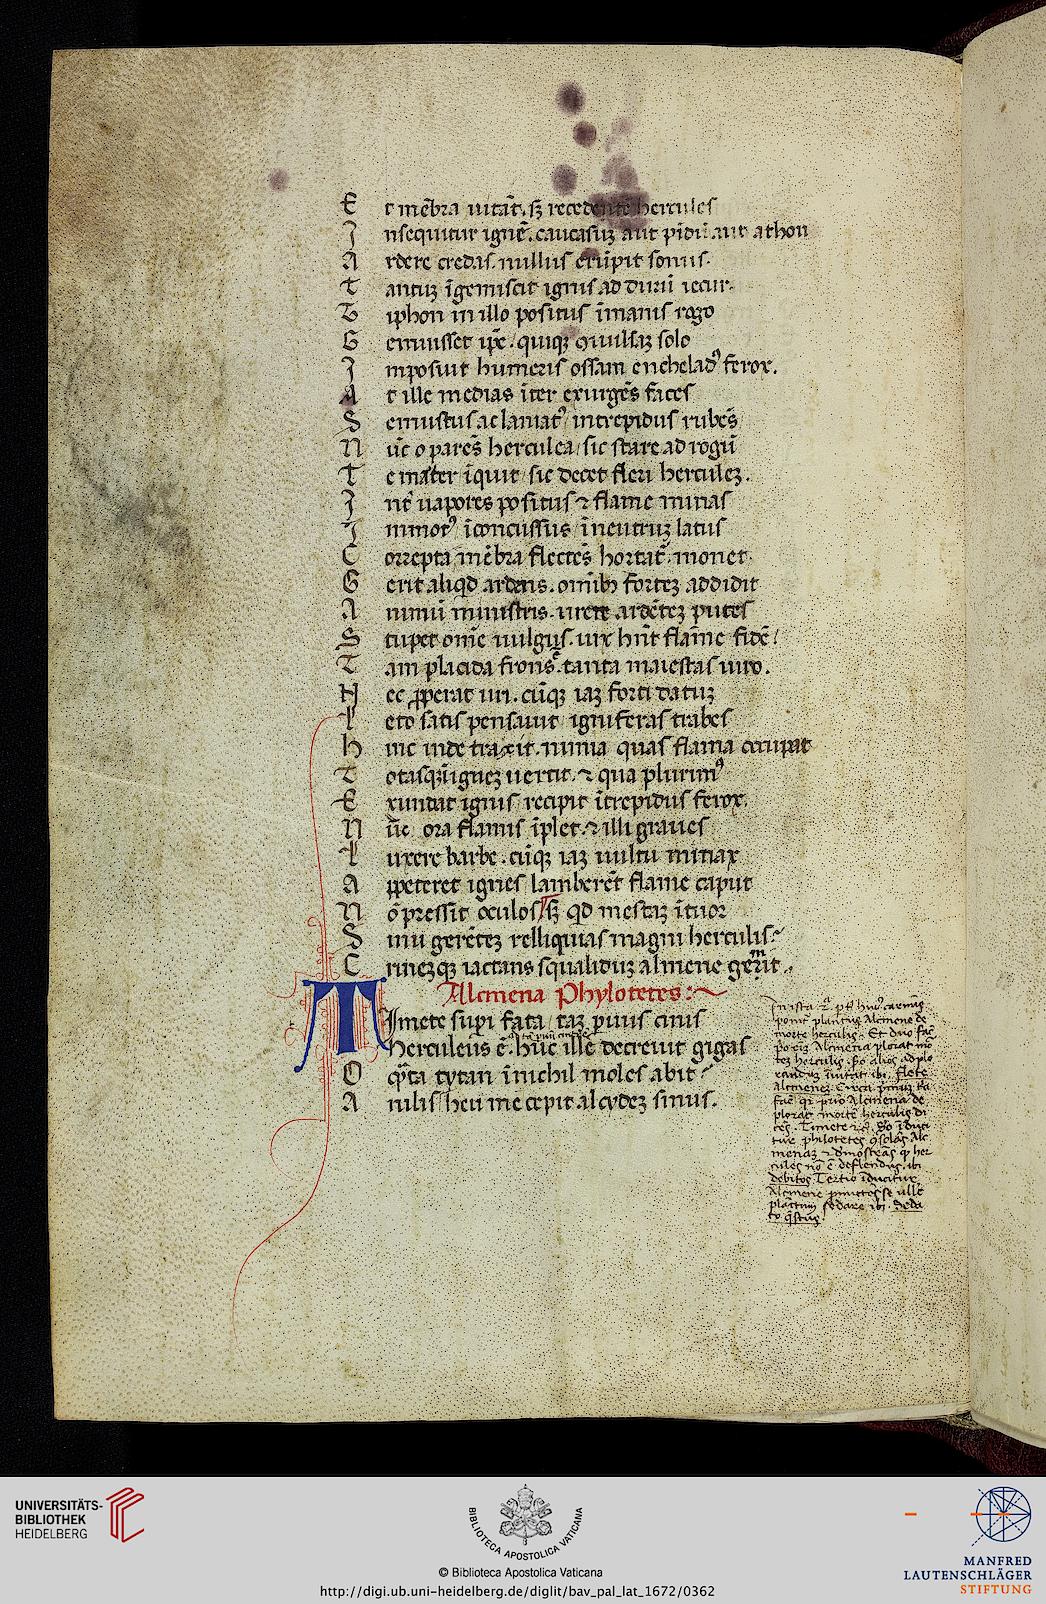 E t mēbra uitāt. sȝ recedente hercules
I nsequitur ignē. caucasuȝ aut pīdū aut athon
A rdere credas. nullus erūpit sonus.
T antuȝ īgemiscit ignis ad durū iecur.
T iphon in illo positus īmanis rogo
G emuisset ip̄e. quiqȝ ɔuulsaȝ solo
I mposuit humeris ossam enchelad᾽ ferox.
A t ille medias īter exurgēs faces
S emustus ac laniat᾽ intrepidus rubēs
N ūc o parēs herculea sic stare ad rogū
T e mater īquit sic decet fleri herculeȝ.
I nt᾽ uapores positus ⁊ flame minas
I nmot᾽ īconcussus īneutruȝ latus
C orrepta mēbra flectēs hortat᾽. monet.
G erit aliqd ardens. omībȝ forteȝ addidit
A nimū ministris. urere ardēteȝ putes
S tupet ome uulgus. uix hn̄t flame fidē
T am placida frons ē. tanta maiestas uiro.
N ec ꝓperat uri. cūqȝ iaȝ forti datuȝ
L eto satis pensauit igniferas trabes
h inc inde traxit. nimia quas flama occupat
T otasqȝ ī igneȝ uertit. ⁊ qua plurim᾽
E xundat ignis recipit ītrepidus ferox.
N ūc ora flamis īplet. ⁊ illi graues
L uxere barbe. cūqȝ iaȝ uultu minax
A ppeteret ignes lamberēt flame caput
N ō pressit oculos sȝ qd mestaȝ ītuor
S inu gerēteȝ relliquias magni herculis.
C rineȝqȝ iactans squaliduȝ almene gemit.
Alcmena Phylotetes:~
T Imete supi fata taȝ puus cinis
Herculeus ē. huc ille decreuit gigas
O q̄ta tytan ī nichil moles abit
A nilis heu me cepit alcydeȝ sinus.
In ista
ponit planctus Alcmene de
morte herculis. Et duo fac̄
po eīs Alcmena plorat mō
teȝ herculis. Sō alios ad plo
randuȝ īuitat. ibi. flete
Alcmeneȝ.
facit qr prīo Alcmena de
plorat mortē herculis di
cēs. Timete Sō īduci
tur philotetes ɔsolās Alc
menaȝ ⁊ dmōstrās qȝ her
cules nō ē deflendus. ibi
debitos. Tertio īducitur
Alcmene
planctum sedare ibi. Seda
to q̄stus.
UNIVERSITÄTS-
BIBLIOTHEK
HEIDELBERG
BIBLIOTECA APOSTOLICA VATICANA
© Biblioteca Apostolica Vaticana
http://digi.ub.uni-heidelberg.de/diglit/bav_pal_lat_1672/0362
MANFRED
LAUTENSCHLÄGER
STIFTUNG